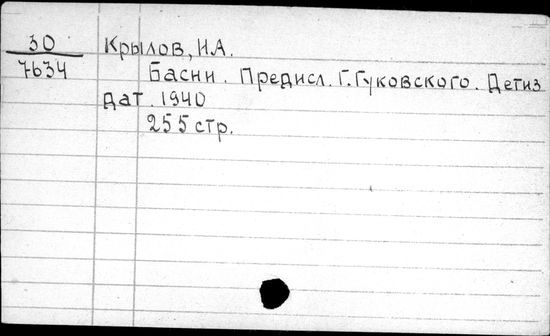 30
7634
Крылов, И.А.
Басни. Предисл. Г. Гуковского. Детиз
дат. 1940
255 стр.